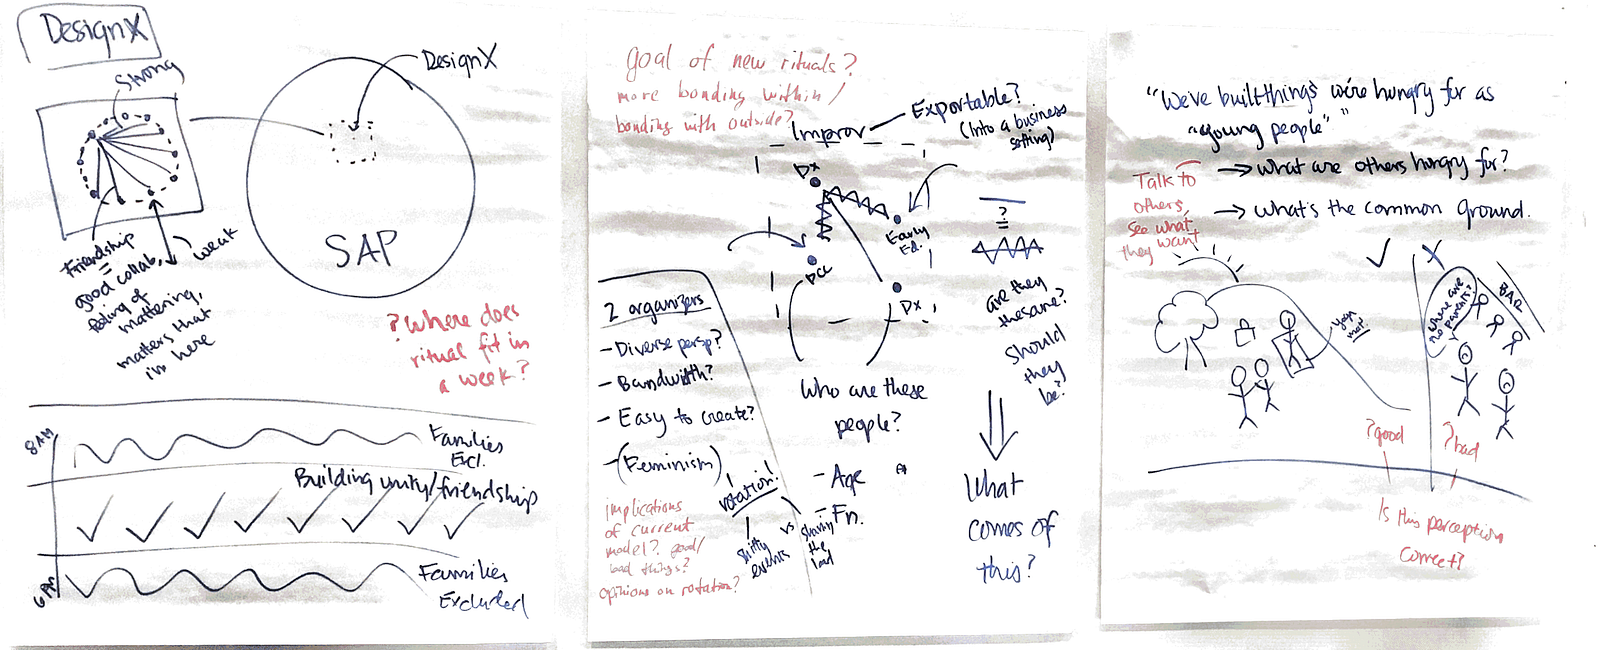 DesignX
Strong
DesignX
SAP
weak
Friendship
=
good collab,
feeling of
mattering,
matters that
in here
? Where does
ritual fit in
a week?
8AM
Families
Excl.
Building unity/friendship
6PM
Families
Excluded
goal of new rituals?
more bonding within/
bonding with outside?
Improv
Exportable?
(Into a business
setting)
Dx
Early
Ed.
DCC
Dx
?
=
are they
the same?
Should
they
be?
What
comes of
this?
2 organizers
- Diverse persp?
- Bandwidth?
- Easy to create?
- (Feminism)
rotation!
shitty
events
vs
sharing
the
load
implications
of current
model? good/
bad things?
opinions on rotation?
Who are these
people?
- Age
- Fn.
"We've built things we're hungry for as
"young people" "
→ what are others hungry for?
→ what's the common ground.
Talk to
others,
see what
they want
Yoga
mat
where are
the parents?
BAR
? good
? bad
Is this perception
correct?